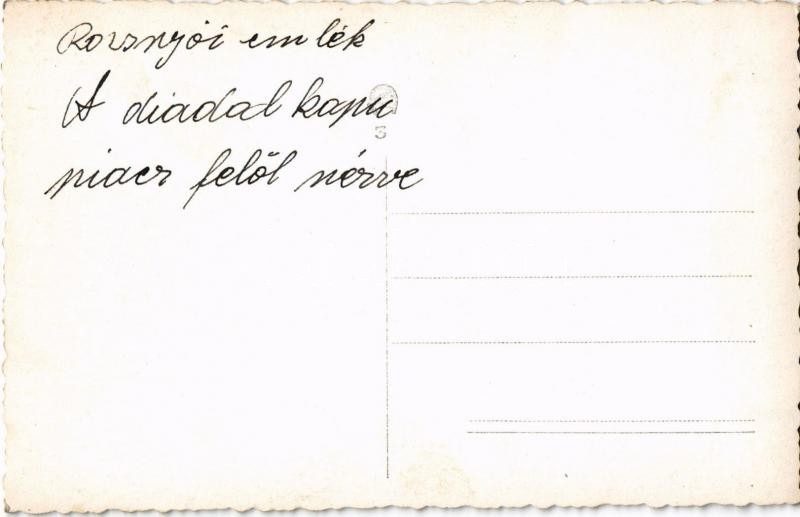 Rozsnyói emlék
A diadal kapu
piacz felől nézve
3